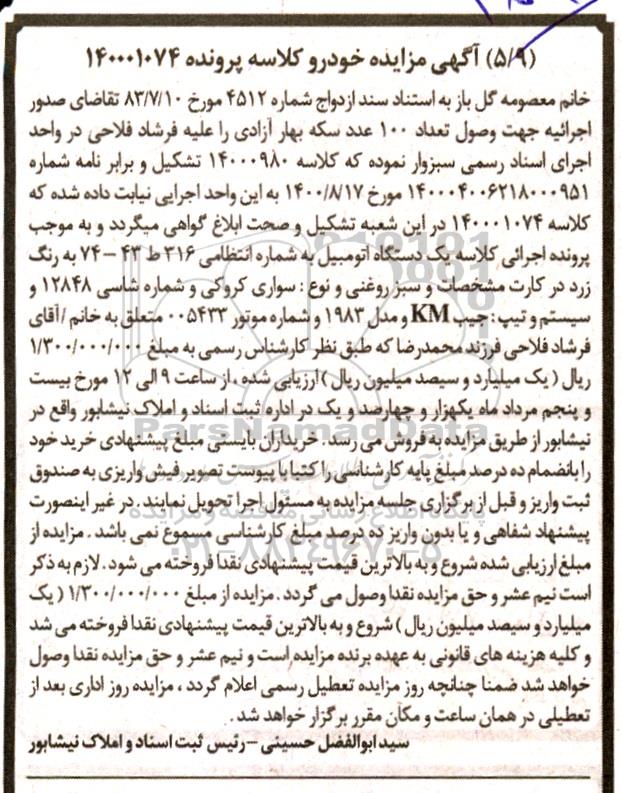 (۵/۹) آگهی مزایده خودرو کلاسه پرونده ۱۴۰۰۰۱۰۷۴
خانم معصومه گل باز به استناد سند ازدواج شماره ۴۵۱۲ مورخ ۸۳/۷/۱۰ تقاضای صدور
اجرائیه جهت وصول تعداد ۱۰۰ عدد سکه بهار آزادی را علیه فرشاد فلاحی در واحد
اجرای اسناد رسمی سبزوار نموده که کلاسه ۱۴۰۰۰۹۸۰ تشکیل و برابر نامه شماره
۱۴۰۰۰۴۰۰۶۲۱۸۰۰۰۹۵۱ مورخ ۱۴۰۰/۸/۱۷ به این واحد اجرایی نیابت داده شده که
کلاسه ۱۴۰۰۰۱۰۷۴ در این شعبه تشکیل و صحت ابلاغ گواهی میگردد و به موجب
پرونده اجرائی کلاسه یک دستگاه اتومبیل به شماره انتظامی ۳۱۶ ط ۴۳ – ۷۴ به رنگ
زرد در کارت مشخصات و سبز روغنی و نوع : سواری کروکی و شماره شاسی ۱۲۸۴۸ و
سیستم و تیپ : جیپ KM و مدل ۱۹۸۳ و شماره موتور ۰۰۵۴۳۳ متعلق به خانم / آقای
فرشاد فلاحی فرزند محمدرضا که طبق نظر کارشناس رسمی به مبلغ ۱/۳۰۰/۰۰۰/۰۰۰
ریال ( یک میلیارد و سیصد میلیون ریال ) ارزیابی شده ، از ساعت ۹ الی ۱۲ مورخ بیست
و پنجم مرداد ماه یکهزار و چهارصد و یک در اداره ثبت اسناد و املاک نیشابور واقع در
نیشابور از طریق مزایده به فروش می رسد . خریداران بایستی مبلغ پیشنهادی خرید خود
را بانضمام ده درصد مبلغ پایه کارشناسی را کتبا با پیوست تصویر فیش واریزی به صندوق
ثبت واریز و قبل از برگزاری جلسه مزایده به مسئول اجرا تحویل نمایند . در غیر اینصورت
پیشنهاد شفاهی و یا بدون واریز ده درصد مبلغ کارشناسی مسموع نمی باشد . مزایده از
مبلغ ارزیابی شده شروع و به بالاترین قیمت پیشنهادی نقدا فروخته می شود . لازم به ذکر
است نیم عشر و حق مزایده نقدا وصول می گردد . مزایده از مبلغ ۱/۳۰۰/۰۰۰/۰۰۰ ( یک
میلیارد و سیصد میلیون ریال ) شروع و به بالاترین قیمت پیشنهادی نقدا فروخته می شد
و کلیه هزینه های قانونی به عهده برنده مزایده است و نیم عشر و حق مزایده نقدا وصول
خواهد شد ضمنا چنانچه روز مزایده تعطیل رسمی اعلام گردد ، مزایده روز اداری بعد از
تعطیلی در همان ساعت و مکان مقرر برگزار خواهد شد .
سید ابوالفضل حسینی – رئیس ثبت اسناد و املاک نیشابور
ParsNamadData
۰۲۱-۸۸۳۴۹۶۷۰-۵